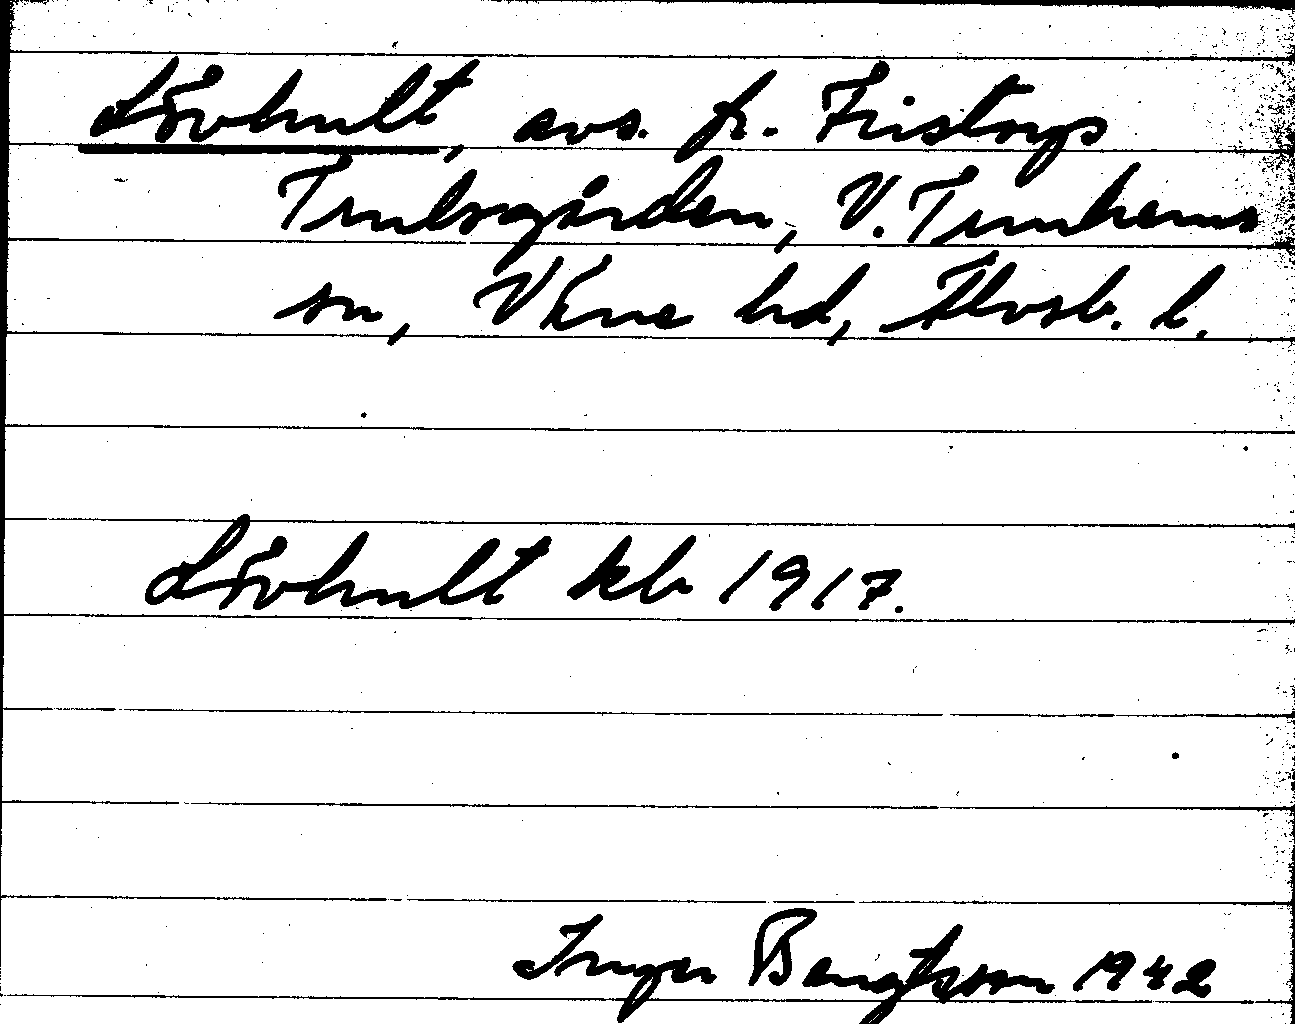 Lövhult, avs. fr. Fristorps
Trulsgården, V. Tunhems
sn, Väne hd, Älvsb. l.
Lövhult kb 1917.
Inger Bengtsson 1942